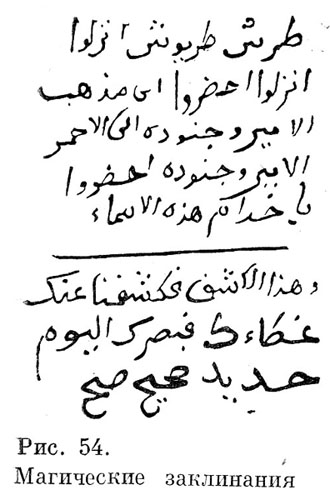 طرش طريوش انزلوا
انزلوا احضروا اى مذهب
الامير وجنوده الى الاحمر
الامير وجنوده احضروا
يا خدام هذه الاسماء
وهذا الكشف فكشفنا عنك
غطاءك فبصرك اليوم
حديد صحيح صحيح
Рис. 54.
Магические заклинания